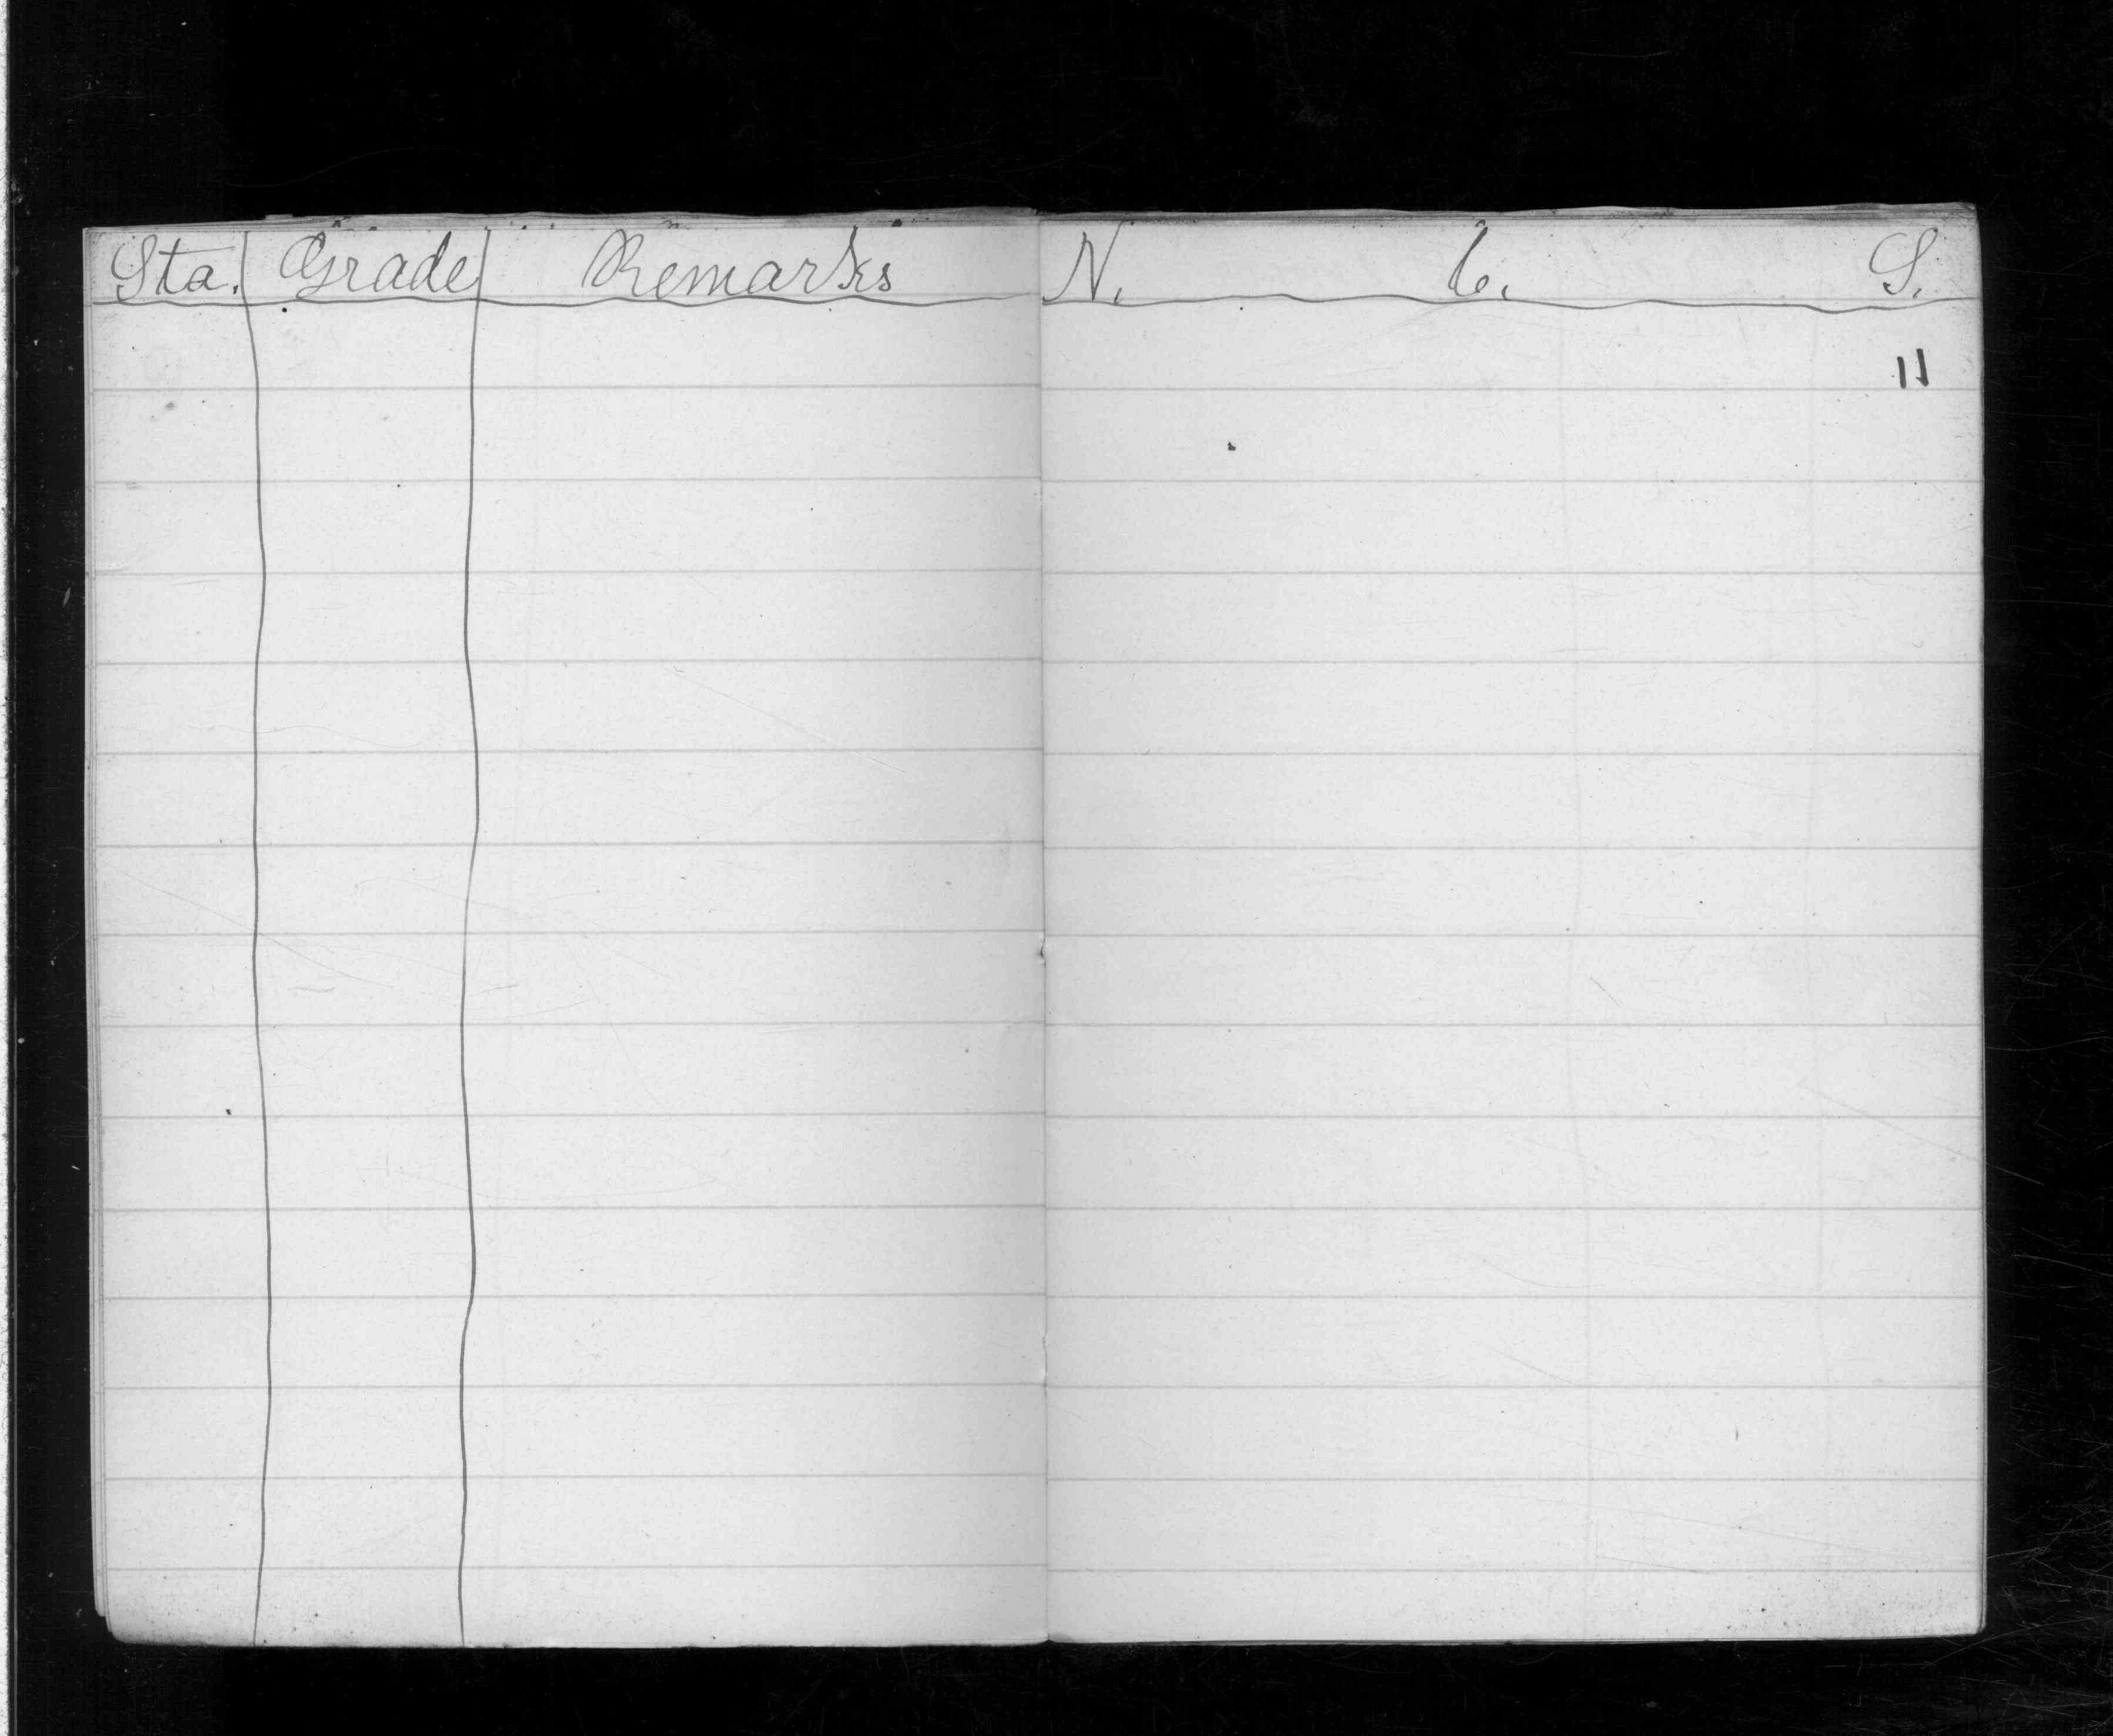 Sta. Grade Remarks N. C. S.
11